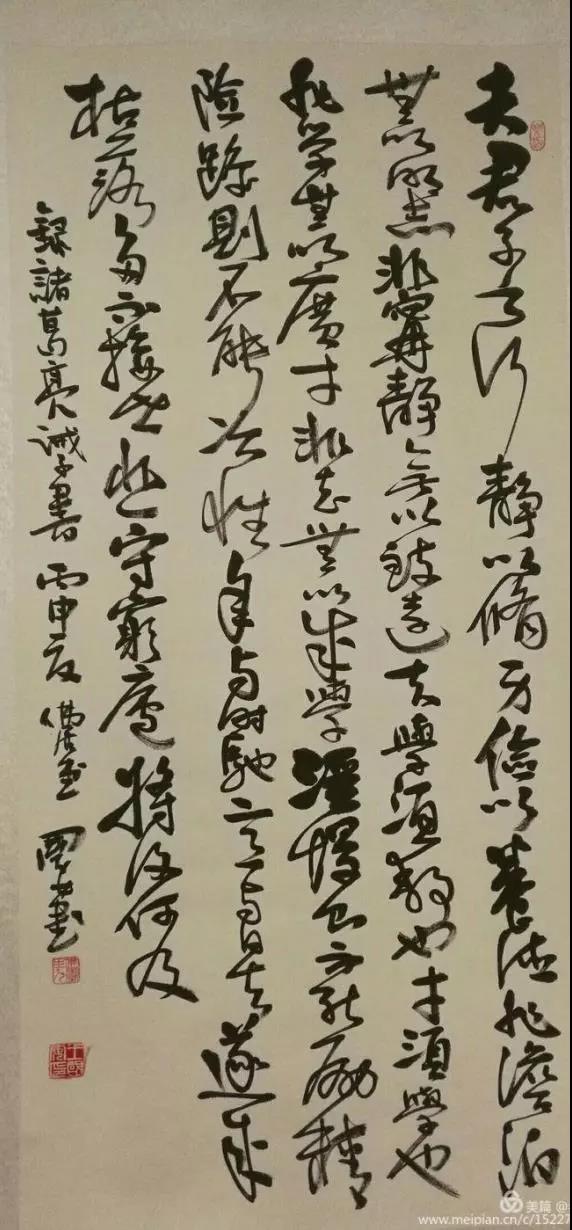 夫君子之行靜以脩身儉以養德非澹泊
無以明志非寧靜無以致遠夫學須靜也才須學也
非學無以廣才非志無以成學淫慢則不能勵精
險躁則不能冶性年與時馳意與日去遂成
枯落多不接世悲守窮廬將復何及
錄諸葛亮誡子書 丙申夏 國
美篇 @
www.meipian.cn/c/15227